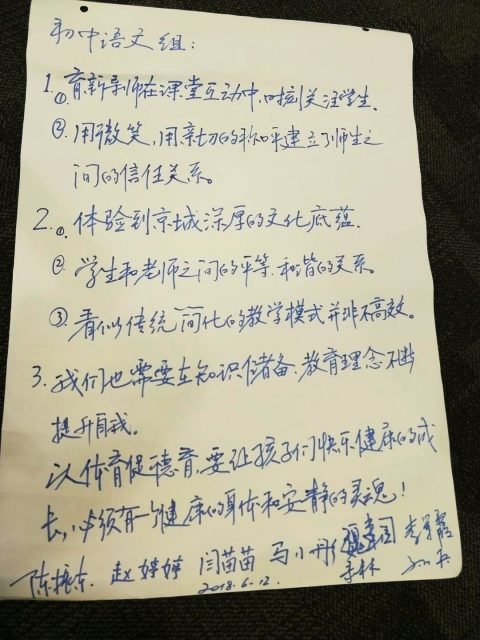 初中语文组:
1.①育新导师在课堂互动中,时刻关注学生.
②.用微笑,用亲切的称呼建立了师生之
间的信任关系。
2.①.体验到京城深厚的文化底蕴.
②学生和老师之间的平等.和谐的关系。
③.看似传统、简化的教学模式并非不高效。
3.我们也需要在知识储备.教育理念不断
提升自我。
以体育促德育,要让孩子们快乐健康的成
长,必须有一个健康的身体和安静的灵魂!
陈振东. 赵婷婷 闫苗苗 马小丹
李林
2018.6.12.